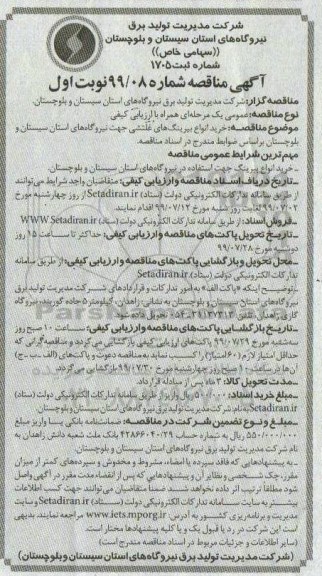 شرکت مدیریت تولید برق
نیروگاه‌های استان سیستان و بلوچستان
((سهامی خاص))
شماره ثبت ۱۷۰۵
آگهی مناقصه شماره ۹۹/۰۸ نوبت اول
مناقصه گزار: شرکت مدیریت تولید برق نیروگاه‌های استان سیستان و بلوچستان.
نوع مناقصه: عمومی یک مرحله‌ای همراه با ارزیابی کیفی
موضوع مناقصه: خرید انواع بیرینگ‌های غلتشی جهت نیروگاه‌های استان سیستان و
بلوچستان براساس ضوابط مندرج در اسناد مناقصه.
مهم‌ترین شرایط عمومی مناقصه
ـ خرید انواع بیرینگ جهت استفاده در نیروگاه‌های استان سیستان و بلوچستان.
ـ تاریخ دریافت اسناد مناقصه و ارزیابی کیفی: متقاضیان واجد شرایط می‌توانند
از طریق سامانه تدارکات الکترونیکی دولت (ستاد) Setadiran.ir از روز چهارشنبه مورخ
۹۹/۰۷/۰۲ لغایت روز شنبه مورخ ۹۹/۰۷/۱۲ اقدام نمایند.
ـ فروش اسناد: از طریق سامانه تدارکات الکترونیکی دولت (ستاد) WWW.Setadiran.ir
ـ تاریخ تحویل پاکت‌های مناقصه و ارزیابی کیفی: حداکثر تا ساعت ۱۵ روز
دوشنبه مورخ ۹۹/۰۷/۲۸
ـ محل تحویل و بازگشایی پاکت‌های مناقصه و ارزیابی کیفی: از طریق سامانه
تدارکات الکترونیکی دولت (ستاد) Setadiran.ir
ـ توضیح اینکه «پاکت الف» به امور تدارکات و قراردادهای شرکت مدیریت تولید برق
نیروگاه‌های استان سیستان و بلوچستان به نشانی: زاهدان، کیلومتر ۵ جاده گوربند، نیروگاه
ـ تاریخ بازگشایی پاکت‌های مناقصه و ارزیابی کیفی: ساعت ۱۰ صبح روز
سه‌شنبه مورخ ۹۹/۰۷/۲۹ پاکت‌های ارزیابی کیفی بازگشائی می‌گردد و مناقصه‌گرانی که
حداقل امتیاز لازم (۶۰ امتیاز) را کسب نماید به مناقصه دعوت و پاکت‌های (الف ـ ب ـ ج)
آن‌ها در ساعت ۱۰ صبح روز چهارشنبه مورخ ۹۹/۰۷/۳۰ بازگشایی می‌گردد.
ـ مدت تحویل کالا: ۳ ماه پس از مبادله قرارداد.
ـ مبلغ خرید اسناد: ریال واریز از طریق سامانه تدارکات الکترونیکی دولت (ستاد)
Setadiran.ir به نام شرکت مدیریت تولید برق نیروگاه‌های استان سیستان و بلوچستان.
ـ مبلغ و نوع تضمین شرکت در مناقصه: ضمانتنامه بانکی یا واریز مبلغ
۵۵۰/۰۰۰/۰۰۰ ریال به شماره حساب ۴۲۸۶۶۰۴۰/۲۹ بانک ملت شعبه دانش زاهدان به
نام شرکت مدیریت تولید برق نیروگاه‌های استان سیستان و بلوچستان.
ـ به پیشنهادهایی که فاقد سپرده یا امضاء، مشروط و مخدوش و سپرده‌های کمتر از میزان
مقرر، چک شخصی و نظایر آن و پیشنهادهایی که پس از انقضاء مدت مقرر در آگهی واصل
شود مطلقا ترتیب اثر داده نخواهد شد. ضمنا متقاضیان می‌توانند جهت کسب اطلاعات
بیشتر به سایت سامانه تدارکات الکترونیکی دولت (ستاد) Setadiran.ir و سایت
مدیریت و برنامه‌ریزی کشور به آدرس www.iets.mporg.ir مراجعه نمایند، بدیهی
است این شرکت در رد یا قبول یک و یا کلیه پیشنهادها مختار است.
(سایر اطلاعات و جزئیات مربوط در اسناد مناقصه مندرج است)
(شرکت مدیریت تولید برق نیروگاه‌های استان سیستان و بلوچستان)